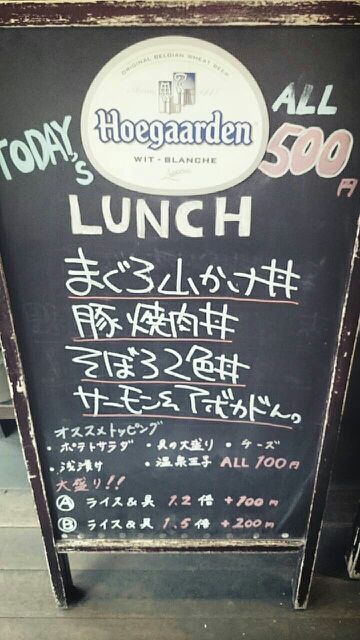 ORIGINAL BELGIAN WHEAT BEER
Hoegaarden
WIT - BLANCHE
TODAY'S
ALL
500円
LUNCH
まぐろ山かけ丼
豚焼肉丼
そぼろ2色丼
サーモン&アボカどん。
オススメトッピング
・ポテトサラダ ・具の大盛り ・チーズ
・浅漬け ・温泉玉子 ALL 100円
大盛り!!
Ⓐ ライス&具 1.2倍 +100円
Ⓑ ライス&具 1.5倍 +200円